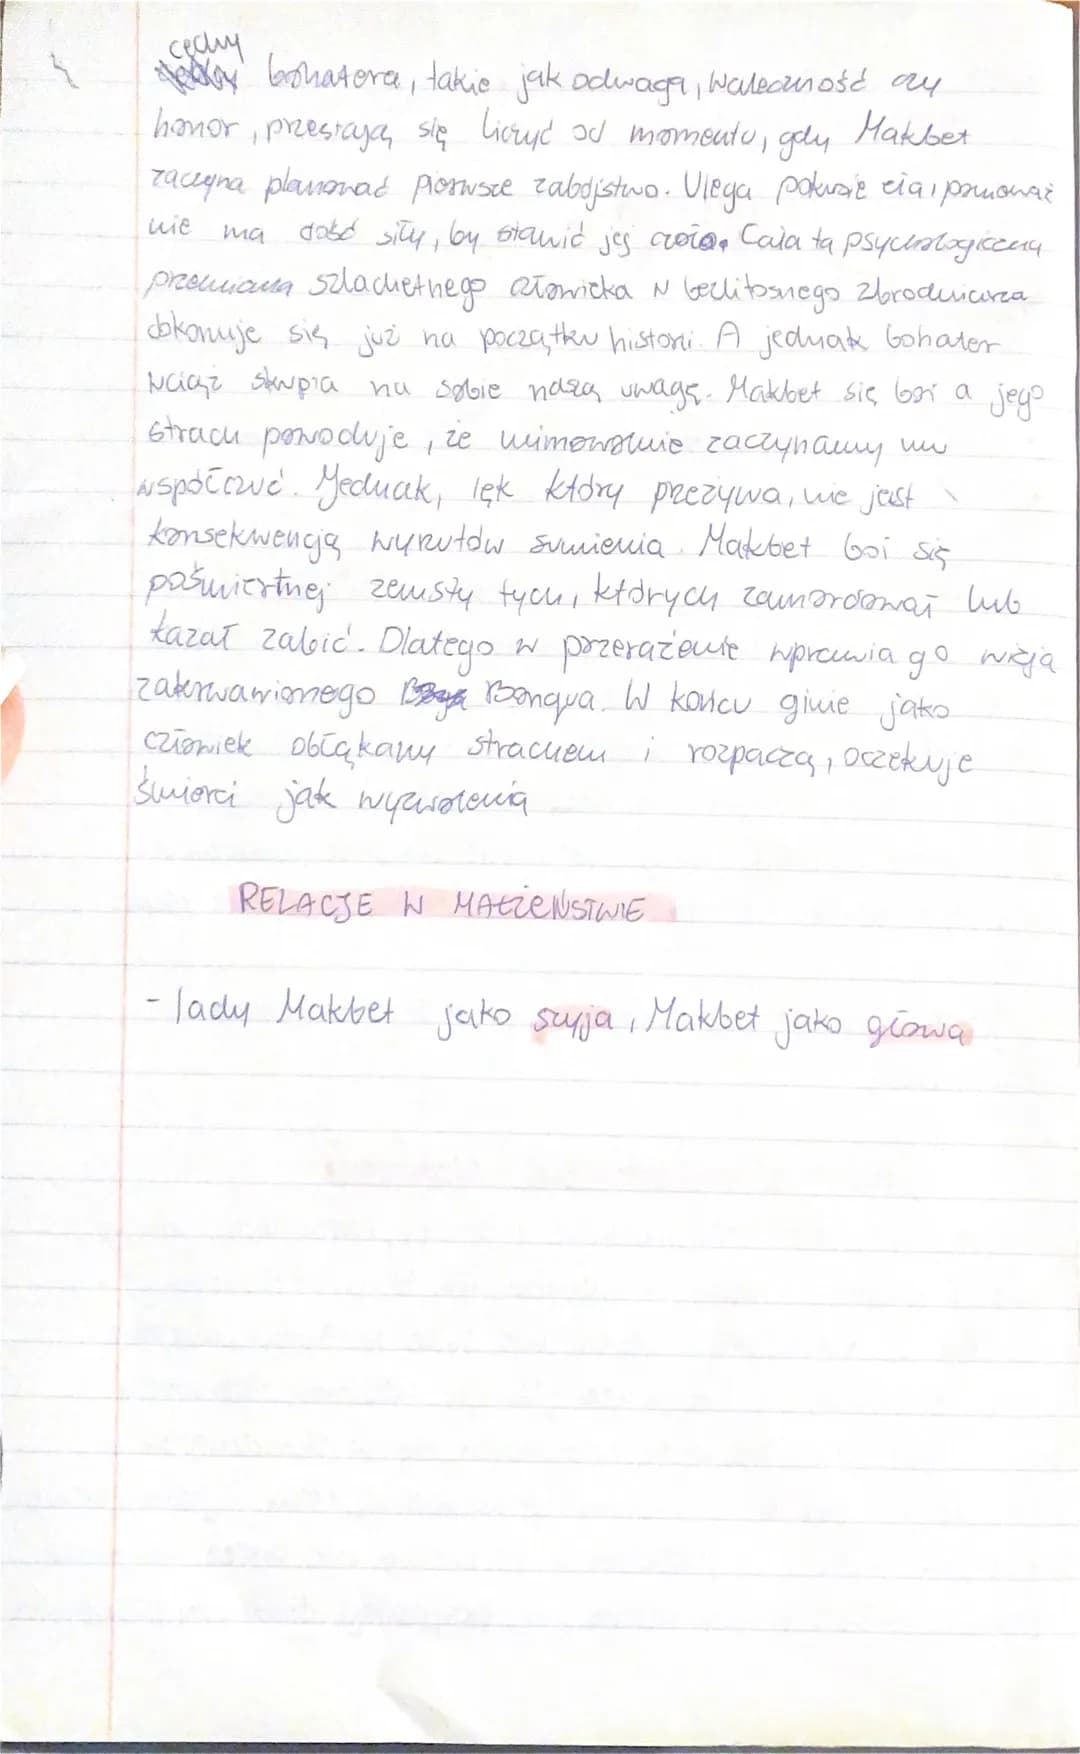 cechy
bohatera, takie jak odwaga, waleczność czy
honor, przestają się liczyć od momentu, gdy Makbet
zaczyna planować pierwsze zabójstwo. Ulega pokusie zła, ponieważ
nie ma dość siły, by stawić jej czoła. Cała ta psychologiczna
przemiana szlachetnego człowieka w bezlitosnego zbrodniarza
dokonuje się już na początku histori. A jednak bohater
wciąż skupia na sobie naszą uwagę. Makbet się boi a jego
strach powoduje, że mimowolnie zaczynamy mu
współczuć. Jednak, lęk który przeżywa, nie jest
konsekwencją wyrutów sumienia. Makbet boi się
pośmiertnej zemsty tych, których zamordował lub
kazał zabić. Dlatego w przerażenie wprawia go wizja
zakrwawionego Banqua. W końcu ginie jako
człowiek obłąkany strachem i rozpaczą, oczekuje
śmierci jak wyzwolenia
RELACJE W MAŁŻEŃSTWIE
- lady Makbet jako szyja, Makbet jako głowa